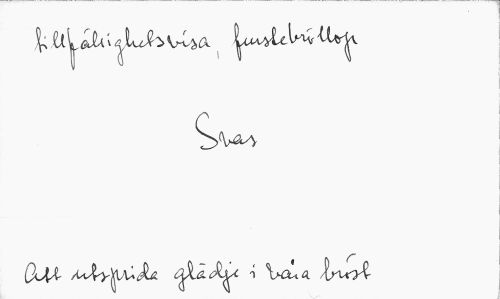 tillfällighetsvisa, furstebröllop
Svas
Att utsprida glädje i våra bröst